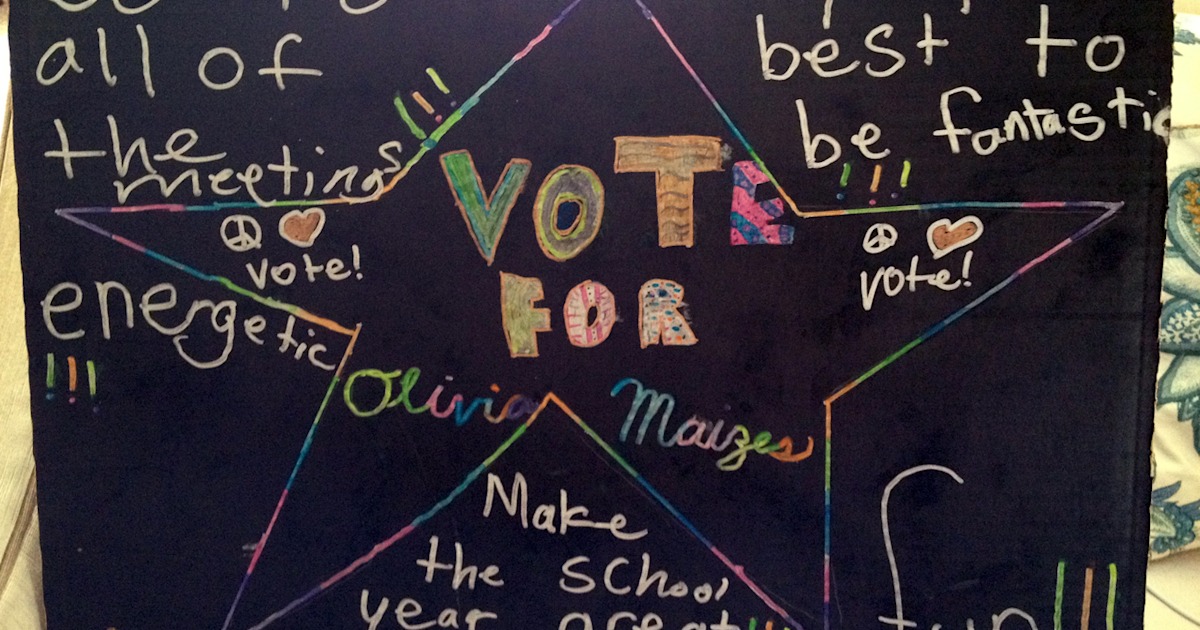 all of
the
meetings
!!!
best to
be fantastic
!!!
VOTE
FOR
Olivia Maizes
vote!
vote!
energetic
!!!
Make
the school
year great!!!
fun!!!